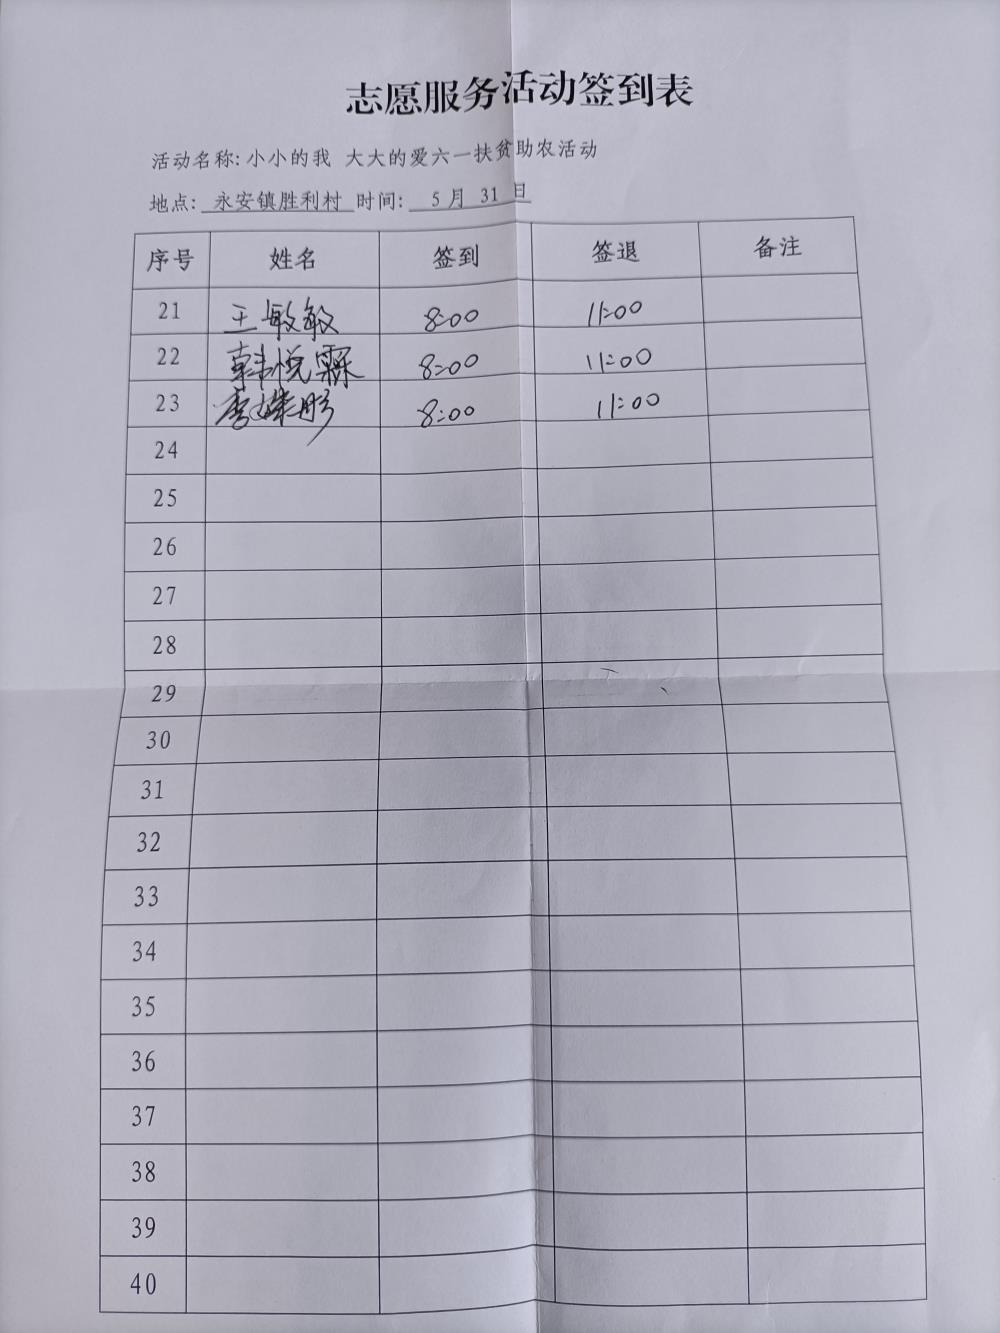 志愿服务活动签到表
活动名称: 小小的我 大大的爱六一扶贫助农活动
地点: 永安镇胜利村 时间: 5 月 31 日
序号 姓名 签到 签退 备注
21 王敏敏 8:00 11:00
22 韩悦霖 8:00 11:00
23 李 彤 8:00 11:00
24
25
26
27
28
29
30
31
32
33
34
35
36
37
38
39
40